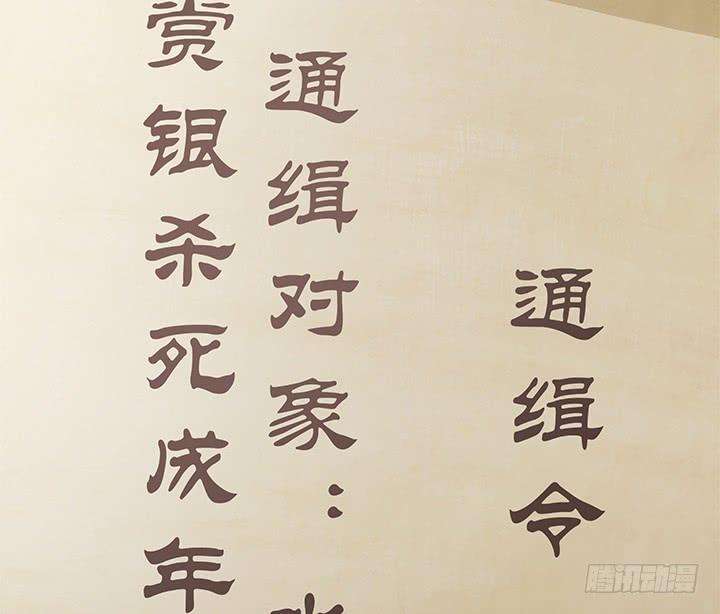 通缉令
通缉对象：
赏银杀死成年
腾讯动漫